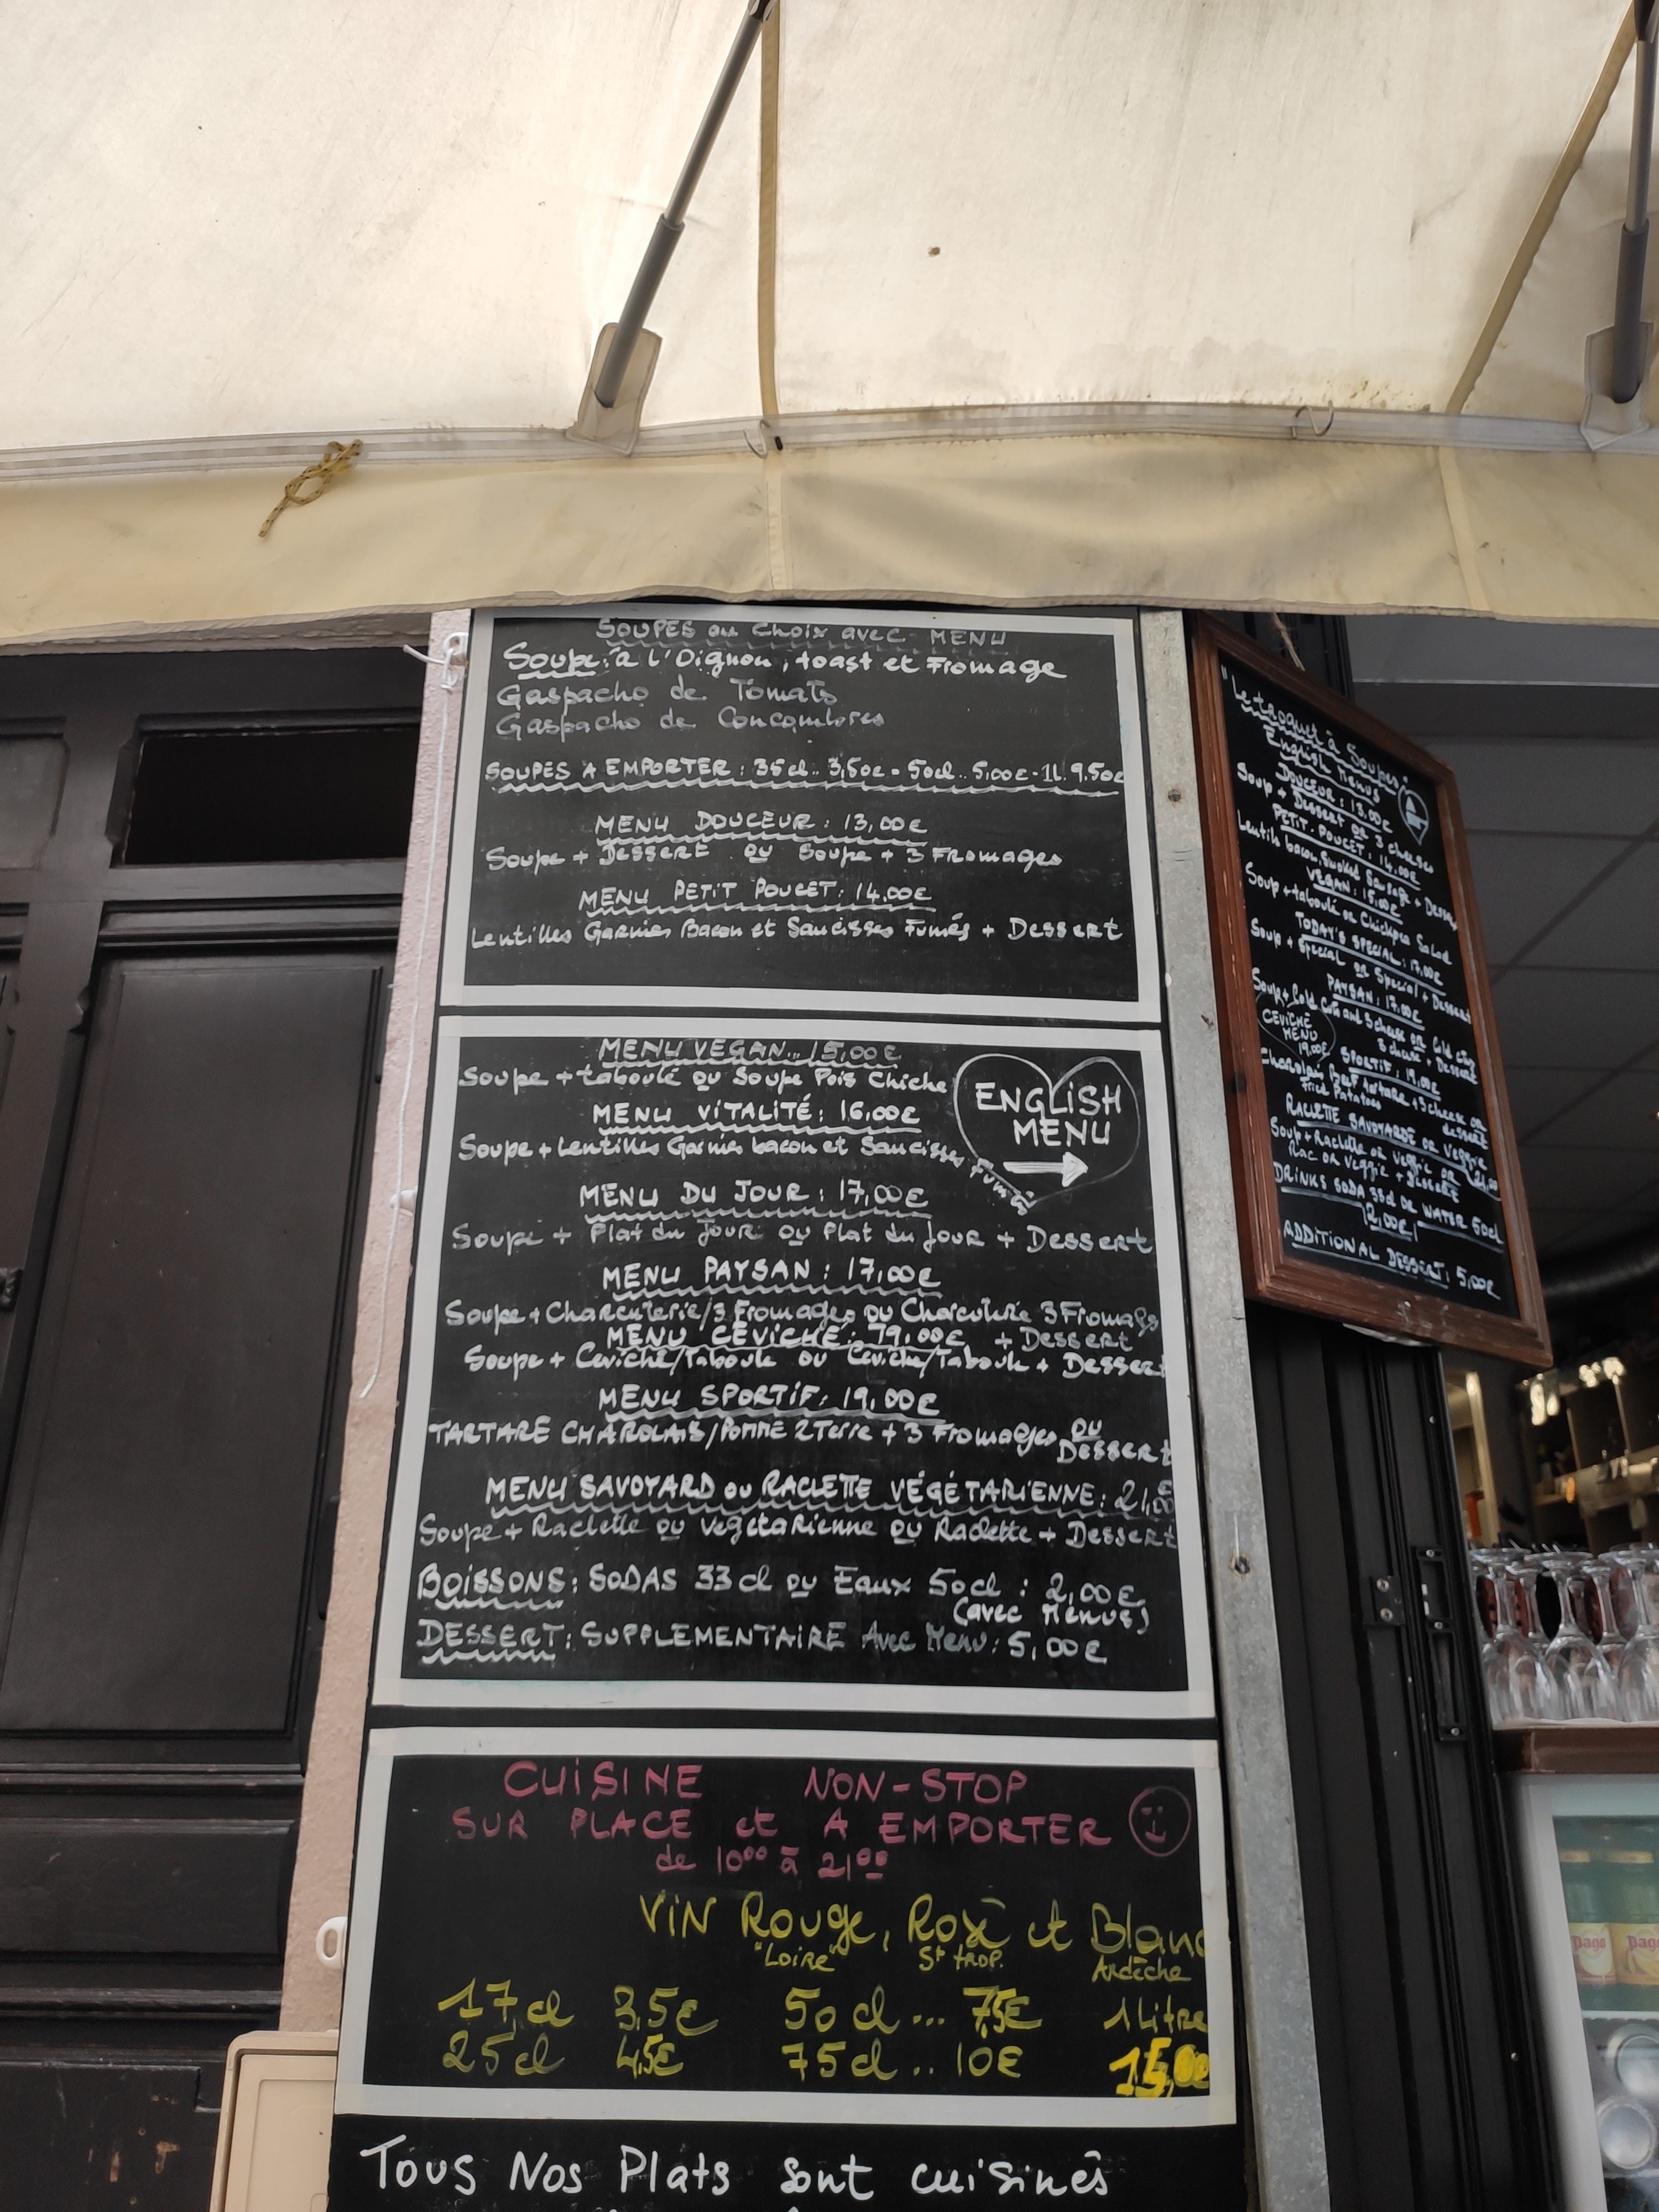 SOUPES au choix avec MENU
Soupe: à l'Oignon, toast et Fromage
Gaspacho de Tomato
Gaspacho de Concombres
SOUPES A EMPORTER: 35cl.. 3,50€ - 50cl.. 5,00€ - 1L. 9.50€
MENU DOUCEUR: 13,00€
Soupe + DESSERT ou Soupe + 3 Fromages
MENU PETIT POUCET: 14,00€
Lentilles Garnies Bacon et Saucisses Fumés + Dessert
MENU VEGAN.. 15,00€
Soupe + taboulé ou Soupe Pois Chiche
MENU VITALITÉ: 16,00€
Soupe + Lentilles Garnies bacon et Saucisses Fumés
ENGLISH
MENU
MENU DU JOUR: 17,00€
Soupe + Plat du Jour ou Plat du Jour + Dessert
MENU PAYSAN: 17,00€
Soupe + Charcuterie/3 Fromages ou Charcuterie 3 Fromages
+ Dessert
MENU CÉVICHÉ: 19,00€
Soupe + Ceviche/Taboulé ou Ceviche/Taboulé + Dessert
MENU SPORTIF: 19,00€
TARTARE CHAROLAIS/POMME 2 Terre + 3 Fromages ou
Dessert
MENU SAVOYARD ou RACLETTE VÉGÉTARIENNE: 21,00€
Soupe + Raclette ou VegetaRienne ou Raclette + Dessert
BOISSONS: SODAS 33cl ou Eaux 50cl: 2,00€
(avec Menus)
DESSERT: SUPPLEMENTAIRE Avec Menu: 5,00€
CUISINE NON-STOP
SUR PLACE et A EMPORTER
de 10⁰⁰ à 21⁰⁰
VIN Rouge, Rosé et Blanc
"Loire" St TROP. Ardèche
17cl 3,5€ 50cl... 7,5€ 1 Litre
25cl 4,5€ 75cl.. 10€ 15,00
Tous Nos Plats sont cuisinés
"Le troquet à Soupes"
English Menus
DOUCEUR: 13,00€
Soup + Dessert or 3 cheeses
PETIT-POUCET: 14,00€
Lentils bacon, Smoked Sausage + Dessert
VEGAN: 15,00€
Soup + taboulé or Chickpea Salad
TODAY'S SPECIAL: 17,00€
Soup + Special or Special + Dessert
PAYSAN: 17,00€
Soup + Cold Cuts and 3 cheese or Cold Cuts
3 cheese + Dessert
CEVICHE
MENU
19,00€
SPORTIF: 19,00€
Charolais Beef tartare + 3 cheese or
Fried Potatoes dessert
RACLETTE SAVOYARDE OR VEGGIE
21,00
Soup + Raclette or Veggie or
Rac or Veggie + Dessert
DRINKS SODA 33cl OR WATER 50cl
2,00€
ADDITIONAL DESSERT: 5,00€
pago
pago